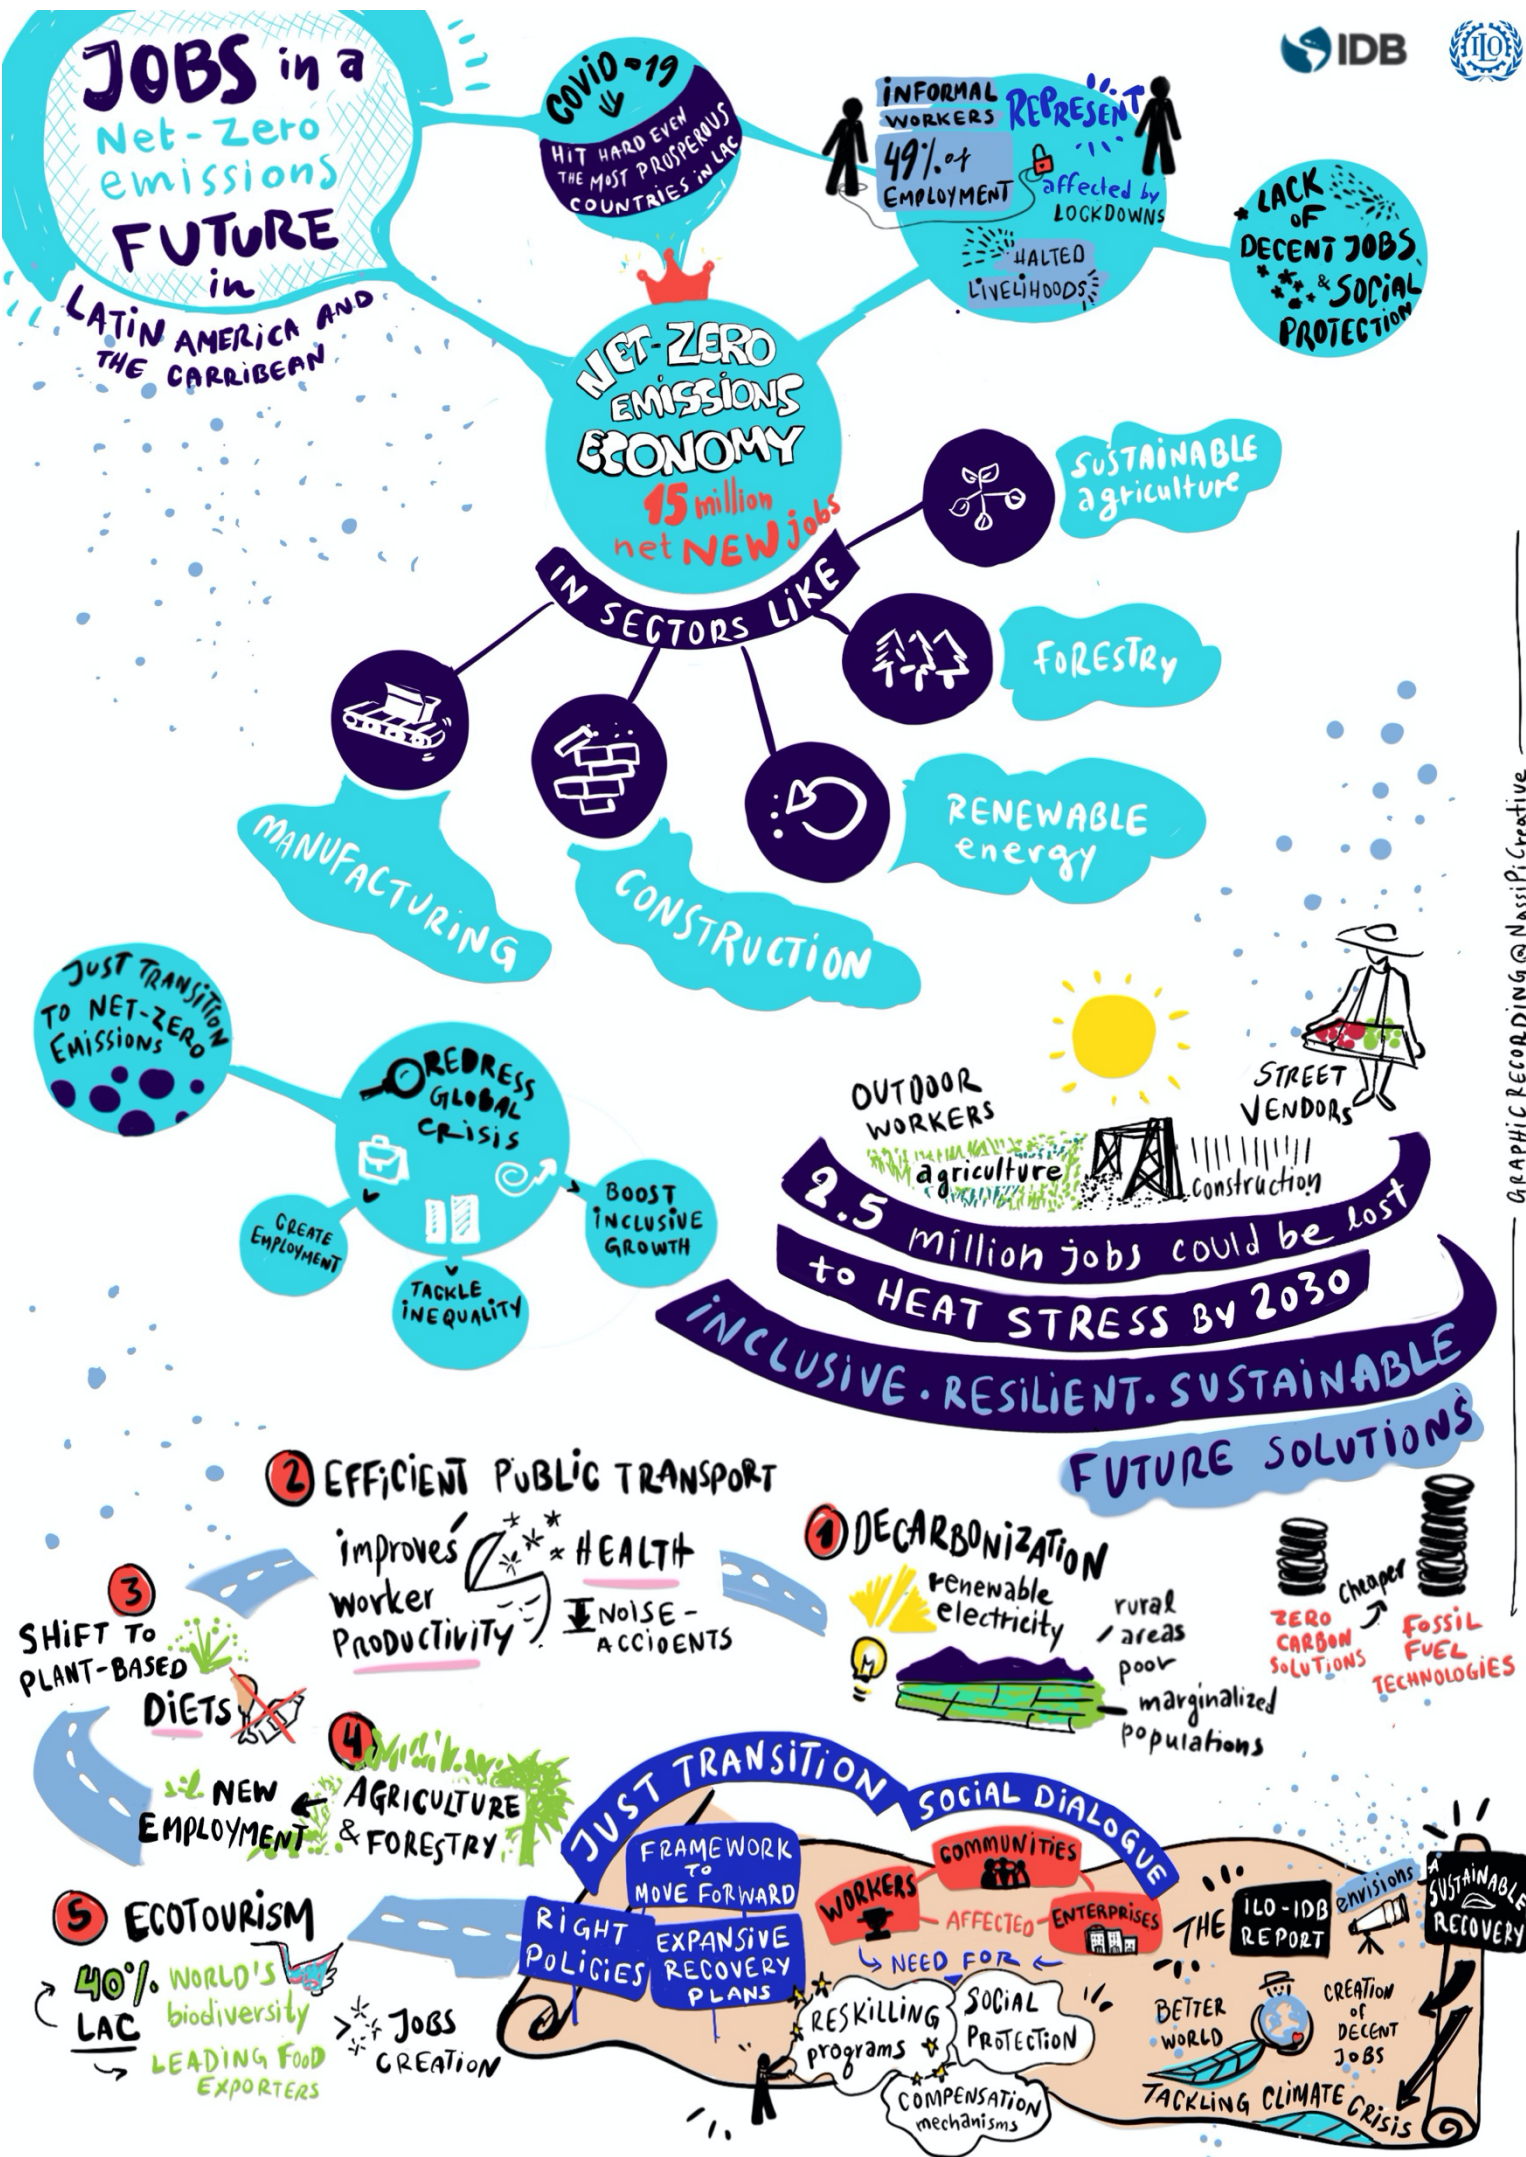 JOBS in a
Net-Zero
emissions
FUTURE
in
LATIN AMERICA AND
THE CARRIBEAN
COVID-19
HIT HARD EVEN
THE MOST PROSPEROUS
COUNTRIES IN LAC
INFORMAL
WORKERS
REPRESENT
49% of
EMPLOYMENT
affected by
LOCKDOWNS
HALTED
LIVELIHOODS
IDB
ILO
LACK
OF
DECENT JOBS
& SOCIAL
PROTECTION
NET-ZERO
EMISSIONS
ECONOMY
15 million
net NEW jobs
IN SECTORS LIKE
SUSTAINABLE
agriculture
FORESTRY
RENEWABLE
energy
CONSTRUCTION
MANUFACTURING
GRAPHIC RECORDING @NassiPiCreative
JUST TRANSITION
TO NET-ZERO
EMISSIONS
REDRESS
GLOBAL
CRISIS
CREATE
EMPLOYMENT
TACKLE
INEQUALITY
BOOST
INCLUSIVE
GROWTH
OUTDOOR
WORKERS
agriculture
STREET
VENDORS
construction
2.5 million jobs could be lost
to HEAT STRESS BY 2030
INCLUSIVE. RESILIENT. SUSTAINABLE
FUTURE SOLUTIONS
1 DECARBONIZATION
renewable
electricity
rural
areas
poor
marginalized
populations
ZERO
CARBON
SOLUTIONS
cheaper
FOSSIL
FUEL
TECHNOLOGIES
2 EFFICIENT PUBLIC TRANSPORT
improves
worker
PRODUCTIVITY
HEALTH
NOISE-
ACCIDENTS
3
SHIFT TO
PLANT-BASED
DIETS
4
AGRICULTURE
& FORESTRY
NEW
EMPLOYMENT
5 ECOTOURISM
40% WORLD'S
biodiversity
LAC
LEADING FOOD
EXPORTERS
JOBS
CREATION
JUST TRANSITION
FRAMEWORK
TO
MOVE FORWARD
RIGHT
POLICIES
EXPANSIVE
RECOVERY
PLANS
SOCIAL DIALOGUE
COMMUNITIES
WORKERS
AFFECTED
ENTERPRISES
NEED FOR
RESKILLING
programs
SOCIAL
PROTECTION
COMPENSATION
mechanisms
THE
ILO-IDB
REPORT
envisions
A
SUSTAINABLE
RECOVERY
BETTER
WORLD
CREATION
OF
DECENT
JOBS
TACKLING CLIMATE CRISIS